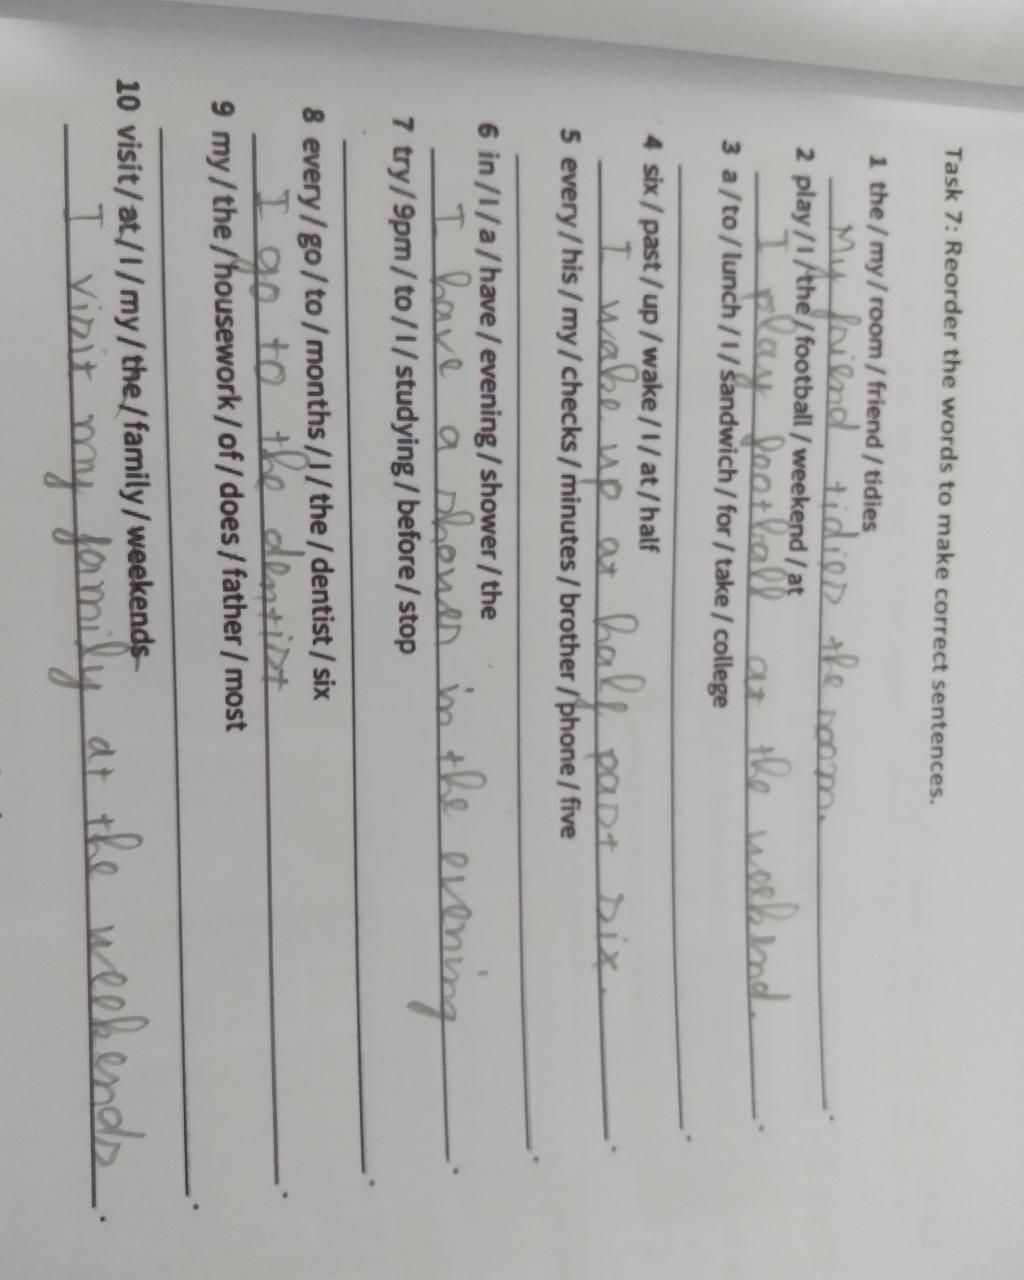 Task 7: Reorder the words to make correct sentences.
1 the / my / room / friend / tidies
My friend tidies the room.
2 play / I / the / football / weekend / at
I play football at the weekend.
3 a / to / lunch / I / sandwich / for / take / college
4 six / past / up / wake / I / at / half
I wake up at half past six.
5 every / his / my / checks / minutes / brother / phone / five
6 in / I / a / have / evening / shower / the
I have a shower in the evening
7 try / 9pm / to / I / studying / before / stop
8 every / go / to / months / I / the / dentist / six
I go to the dentist
9 my / the / housework / of / does / father / most
10 visit / at / I / my / the / family / weekends
I visit my family at the weekends